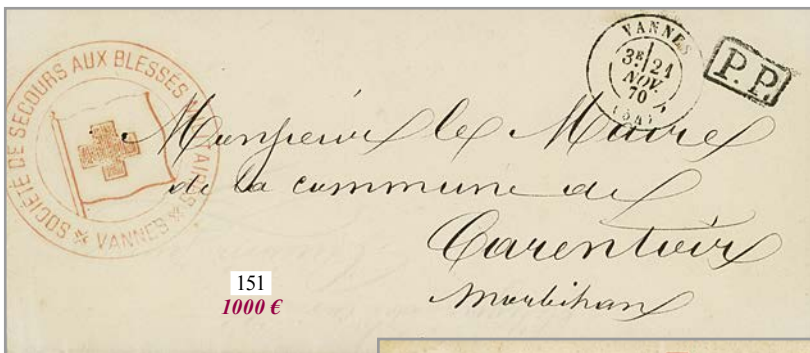 SOCIÉTÉ DE SECOURS AUX BLESSÉS MILITAIRES
* VANNES *
VANNES
3E 21
NOV.
70
P.P.
Monsieur le Maire
de la commune de
Carentoir
Morbihan
151
1000 €